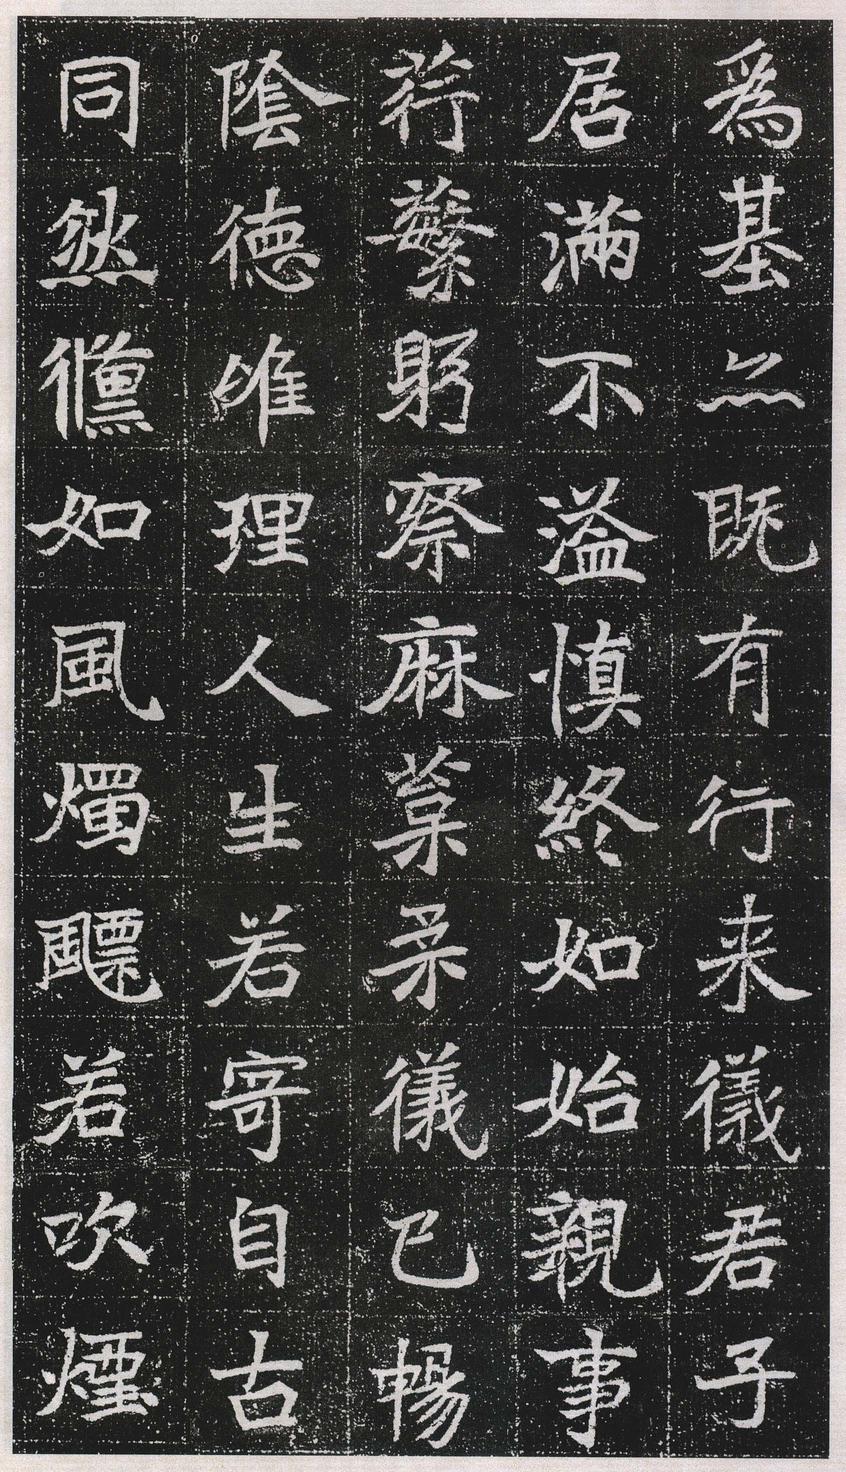 爲基亦既有行来儀君子
居滿不溢慎終如始親事
荇蘩躬察麻菜柔儀已暢
陰德唯理人生若寄自古
同然儵如風燭飄若吹煙